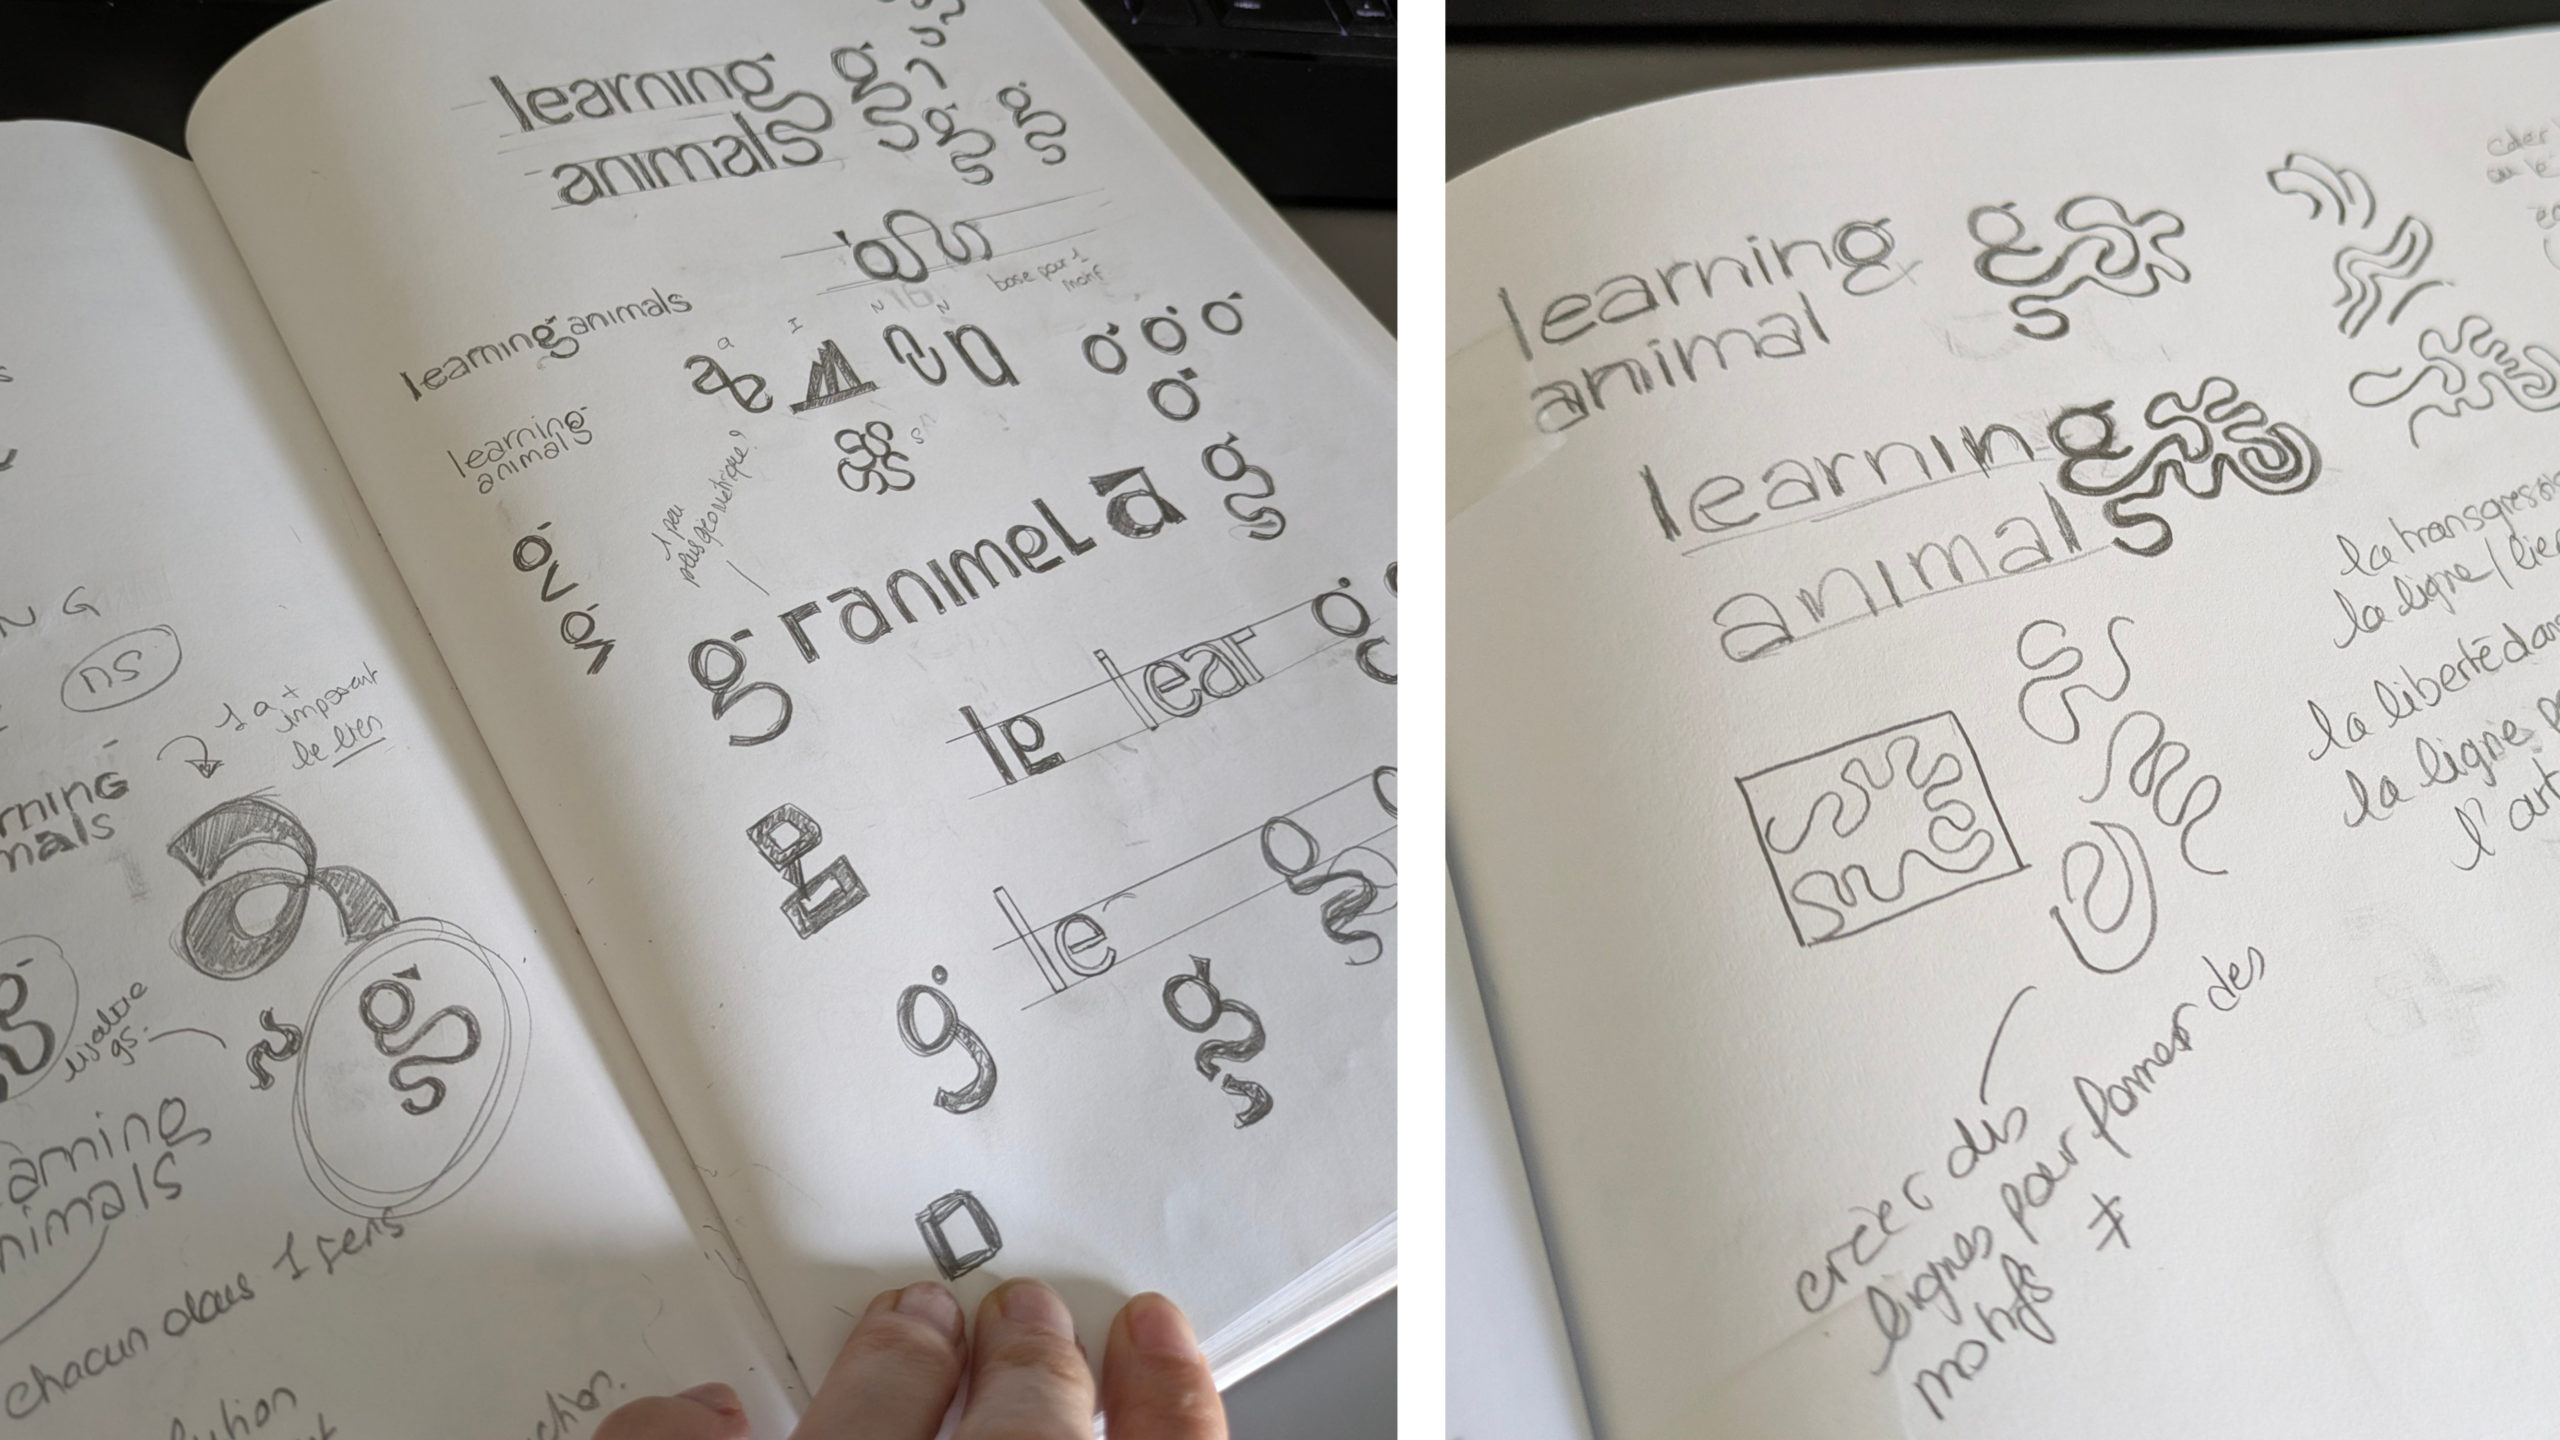 learning
animals
base pour 1
motif
learning animals
a
I
N
N
learning
animals
1 peu
plus géométrique?
g ranimeL a g
le lear g
g
le
g
g
NG
ns
1 a +
imposant
le lien
rning
mals
g
gs
arning
nimals
chacun dans 1 sens
lution
ction.
learning
animal
learning
animals
la transgressio
la ligne / lien
la liberté dans
la ligne p
l'art
créer dis
lignes pour former des
motifs ≠